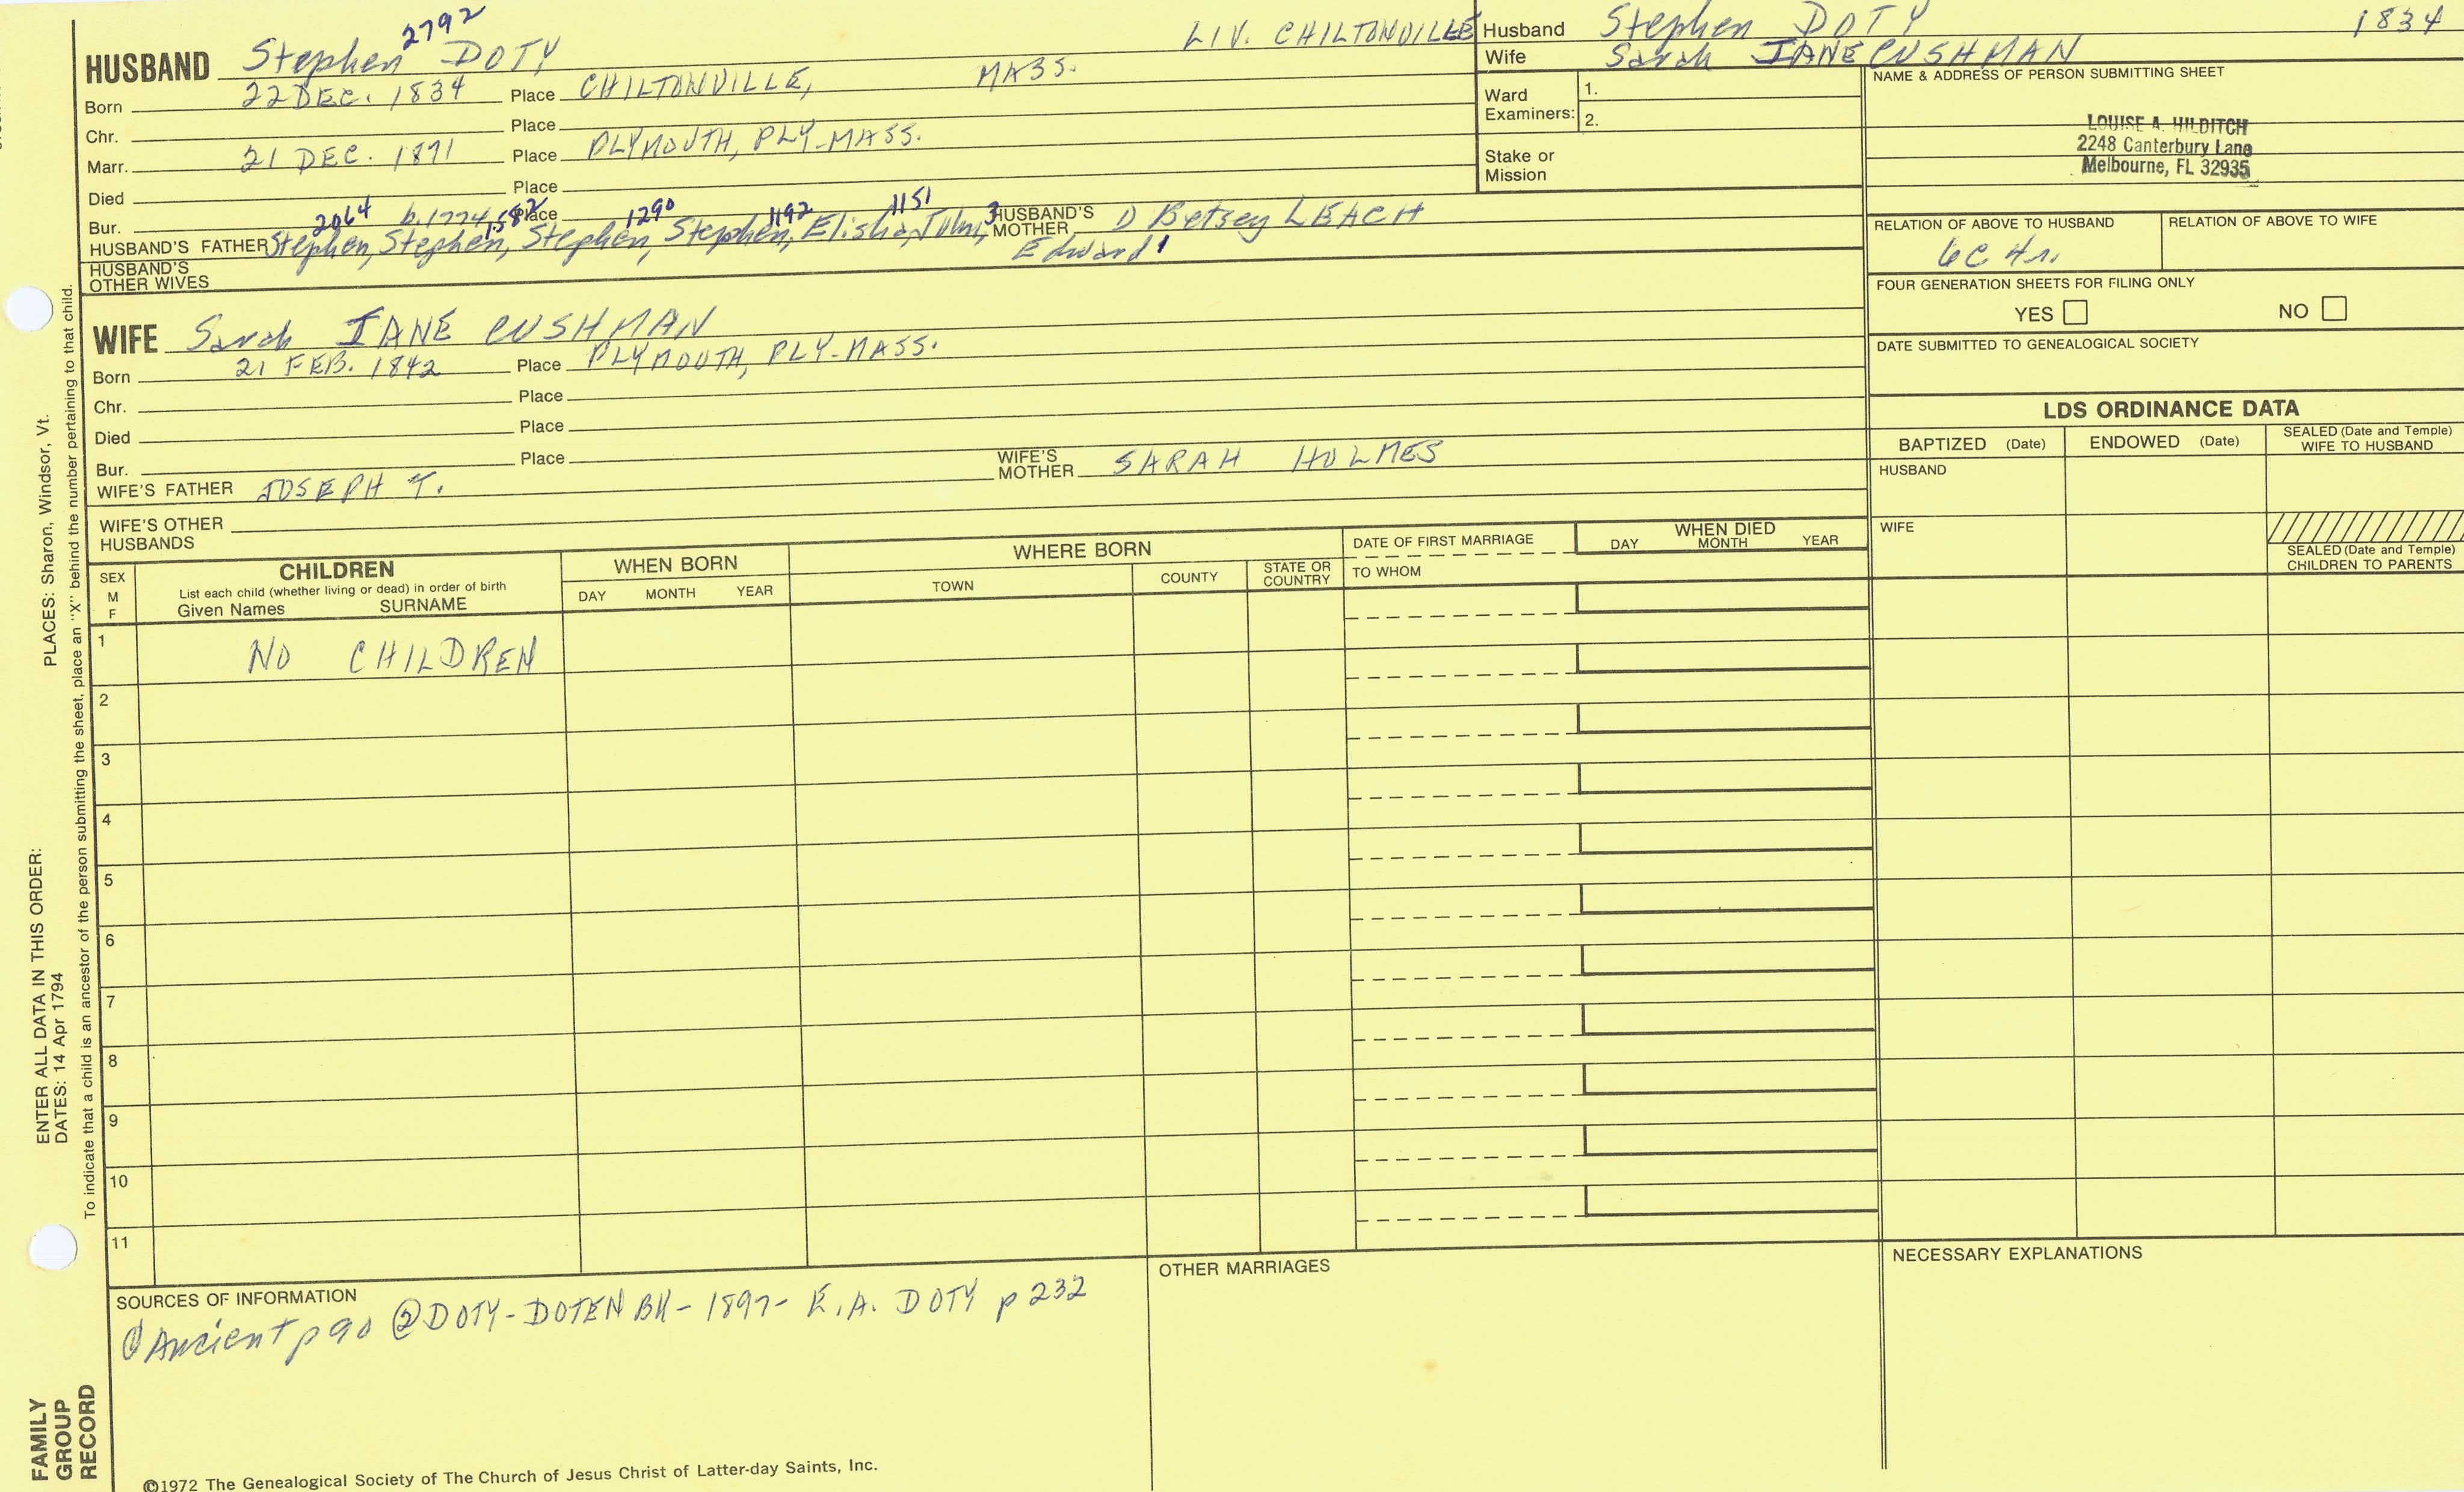 HUSBAND Stephen 2792 DOTY LIV. CHILTONVILLE
Born 22 DEC. 1834 Place CHILTONVILLE, MASS.
Chr. Place
Marr. 21 DEC. 1871 Place PLYMOUTH, PLY-MASS.
Died Place
Bur. Place
2064 b. 1774 1582 1290 1192 1151 3
HUSBAND'S FATHER Stephen, Stephen, Stephen, Stephen, Elisha, John, Edward 1 HUSBAND'S MOTHER Betsey LEACH
HUSBAND'S OTHER WIVES
WIFE Sarah JANE CUSHMAN
Born 21 FEB. 1842 Place PLYMOUTH, PLY-MASS.
Chr. Place
Died Place
Bur. Place
WIFE'S FATHER JOSEPH T. WIFE'S MOTHER SARAH HOLMES
WIFE'S OTHER HUSBANDS
Husband Stephen DOTY 1834
Wife Sarah JANE CUSHMAN
Ward Examiners: 1.
2.
Stake or Mission
NAME & ADDRESS OF PERSON SUBMITTING SHEET
LOUISE A. HILDITCH
2248 Canterbury Lane
Melbourne, FL 32935
RELATION OF ABOVE TO HUSBAND RELATION OF ABOVE TO WIFE
6C 4r.
FOUR GENERATION SHEETS FOR FILING ONLY
YES NO
DATE SUBMITTED TO GENEALOGICAL SOCIETY
LDS ORDINANCE DATA
BAPTIZED (Date) ENDOWED (Date) SEALED (Date and Temple) WIFE TO HUSBAND
HUSBAND
WIFE
SEALED (Date and Temple) CHILDREN TO PARENTS
SEX M F
CHILDREN
List each child (whether living or dead) in order of birth
Given Names SURNAME
WHEN BORN
DAY MONTH YEAR
WHERE BORN
TOWN COUNTY STATE OR COUNTRY
DATE OF FIRST MARRIAGE
TO WHOM
WHEN DIED
DAY MONTH YEAR
1 NO CHILDREN
2
3
4
5
6
7
8
9
10
11
SOURCES OF INFORMATION
① Ancient p 90 ② DOTY-DOTEN BK- 1897- E.A. DOTY p 232
OTHER MARRIAGES
NECESSARY EXPLANATIONS
©1972 The Genealogical Society of The Church of Jesus Christ of Latter-day Saints, Inc.
FAMILY GROUP RECORD
ENTER ALL DATA IN THIS ORDER:
DATES: 14 Apr 1794
PLACES: Sharon, Windsor, Vt.
To indicate that a child is an ancestor of the person submitting the sheet, place an "X" behind the number pertaining to that child.